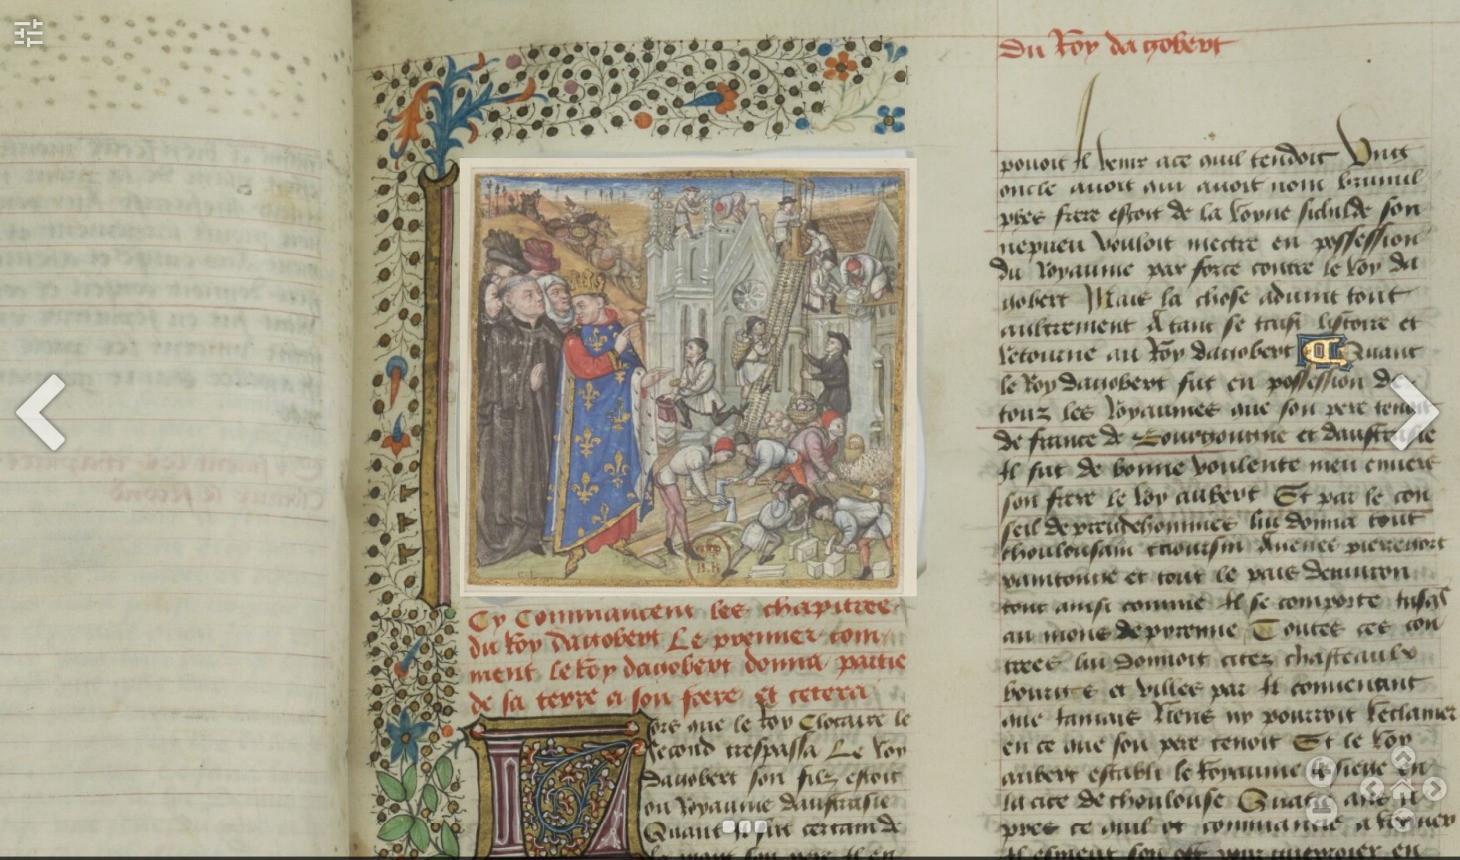 Du Roy dagobert
Cy Commancent les chapitres
du Roy dagobert Le premier com
ment le Roy dagobert donna partie
de sa terre a son frere et cetera
Lors que le Roy Clotaire le
second trespassa Le Roy
dagobert son filz estoit
ou Royaume daustrasie
Quant il sceut certain de
la mort son pere Il en
pouoit Il venir a ce quil tendoit Ung
oncle auoit qui auoit nom brunul
pres frere estoit de la Royne sichilde son
nepueu vouloit mectre en possession
du Royaume par force contre le Roy da
gobert Mais la chose aduint tout
aultrement A tant se taist listoire et
retourne au Roy dagobert Quant
le Roy dagobert fut en possession de
touz les Royaumes que son pere tenoit
de france de Bourgoingne et daustrasie
Il fut de bonne voulente meu enuers
son frere le Roy aubert Et par le con
seil de preudehommes luy donna tout
thoulousain caoursin Agenes pierregort
xantonne et tout le pais denuiron
tout ainsi comme Il se comporte Jusqs
au mons de pyrenne Toutes ces con
trees luy donnoit citez chasteaulx
bourgs et villes par tl conuenant
que Jamais Riens ny pourroit Reclamer
en ce que son pere tenoit Et le Roy
aubert establi le Royaume de siege en
la cite de thoulouse Quatre ans
pres ce quil ot commance a regner